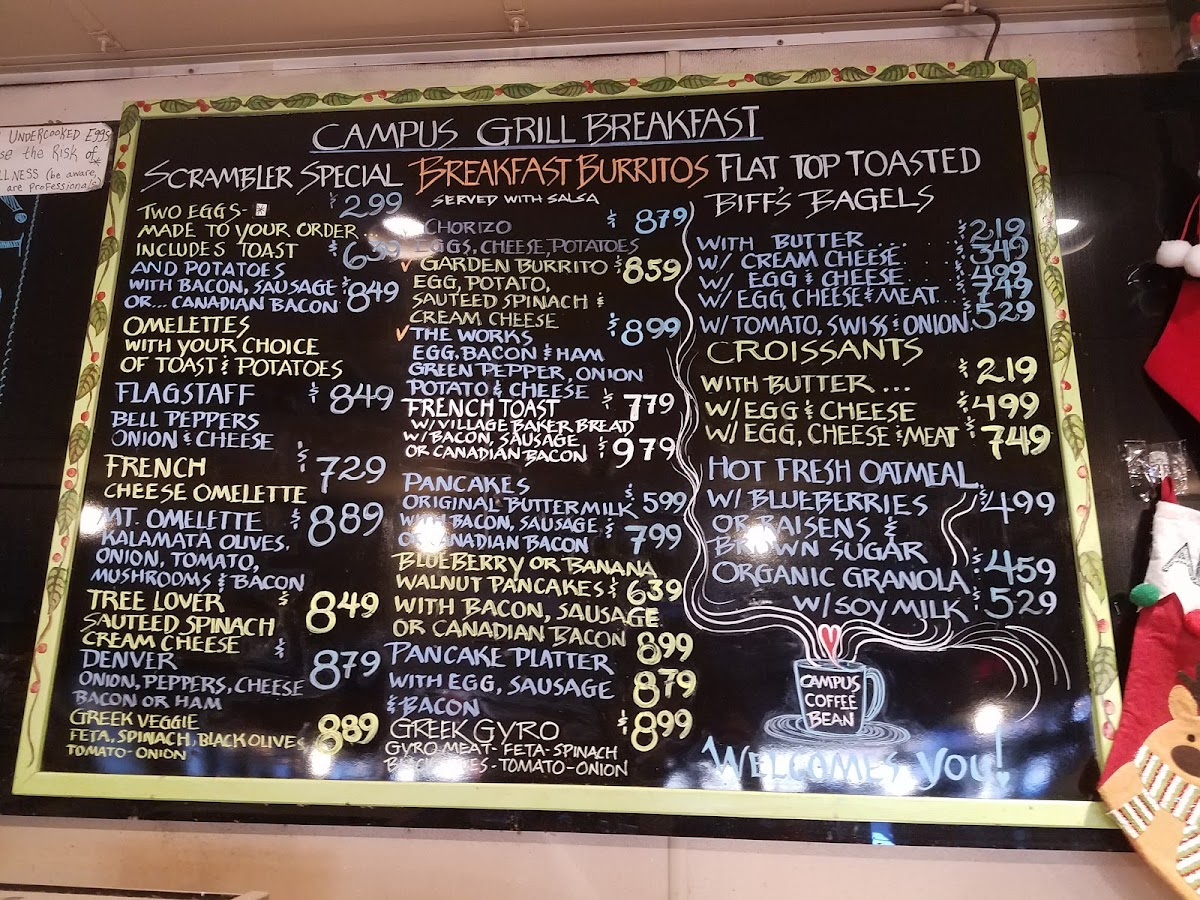 UNDERCOOKED Eggs
the Risk of
(be aware,
are professionals)
CAMPUS GRILL BREAKFAST
SCRAMBLER SPECIAL
TWO EGGS- $2.99
MADE TO YOUR ORDER...
INCLUDES TOAST $6.39
AND POTATOES
WITH BACON, SAUSAGE $8.49
OR... CANADIAN BACON
OMELETTES
WITH YOUR CHOICE
OF TOAST & POTATOES
FLAGSTAFF $8.49
BELL PEPPERS
ONION & CHEESE
FRENCH $7.29
CHEESE OMELETTE
MT. OMELETTE $8.89
KALAMATA OLIVES,
ONION, TOMATO,
MUSHROOMS & BACON
TREE LOVER $8.49
SAUTEED SPINACH
CREAM CHEESE
DENVER $8.79
ONION, PEPPERS, CHEESE
BACON OR HAM
GREEK VEGGIE 8.89
FETA, SPINACH, BLACK OLIVES
TOMATO-ONION
BREAKFAST BURRITOS
SERVED WITH SALSA
CHORIZO $8.79
EGGS, CHEESE, POTATOES
✓ GARDEN BURRITO $8.59
EGG, POTATO,
SAUTEED SPINACH &
CREAM CHEESE
✓ THE WORKS $8.99
EGG, BACON & HAM
GREEN PEPPER, ONION
POTATO & CHEESE
FRENCH TOAST $7.79
W/VILLAGE BAKER BREAD
W/BACON, SAUSAGE
OR CANADIAN BACON $9.79
PANCAKES
ORIGINAL BUTTERMILK $5.99
WITH BACON, SAUSAGE $7.99
OR CANADIAN BACON
BLUEBERRY OR BANANA
WALNUT PANCAKES $6.39
WITH BACON, SAUSAGE
OR CANADIAN BACON 8.99
PANCAKE PLATTER
WITH EGG, SAUSAGE 8.79
& BACON
GREEK GYRO $8.99
GYRO MEAT-FETA-SPINACH
BLACK OLIVES-TOMATO-ONION
FLAT TOP TOASTED
BIFF'S BAGELS
WITH BUTTER .... $2.19
W/ CREAM CHEESE... $3.49
W/ EGG & CHEESE... $4.99
W/ EGG CHEESE & MEAT... $7.49
W/TOMATO, SWISS & ONION. $5.29
CROISSANTS
WITH BUTTER ... $2.19
W/EGG & CHEESE $4.99
W/EGG, CHEESE & MEAT $7.49
HOT FRESH OATMEAL
W/BLUEBERRIES $4.99
OR RAISENS &
BROWN SUGAR
ORGANIC GRANOLA $4.59
W/SOY MILK $5.29
CAMPUS
COFFEE
BEAN
WELCOMES YOU!